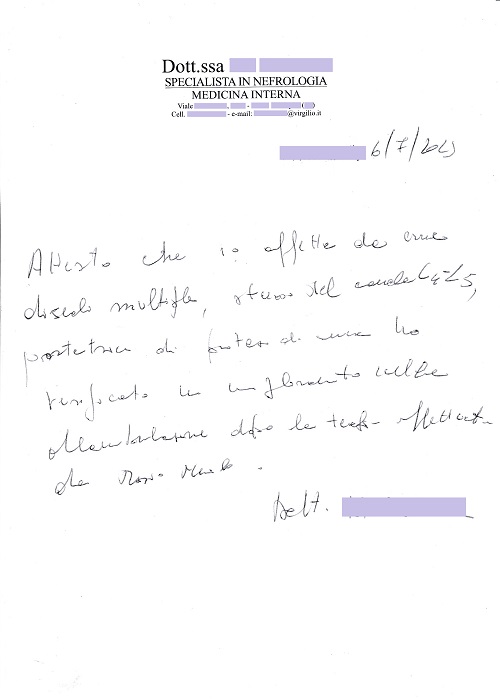 Dott.ssa
SPECIALISTA IN NEFROLOGIA
MEDICINA INTERNA
Viale , - ( )
Cell. - e-mail: @virgilio.it
6/7/2023
Attesto che io affetta da ernie
discali multiple, stenosi del canale L4-L5,
portatrice di protesi di anca ho
verificato un miglioramento nella
deambulazione dopo la terapia effettuata
da
Dott.